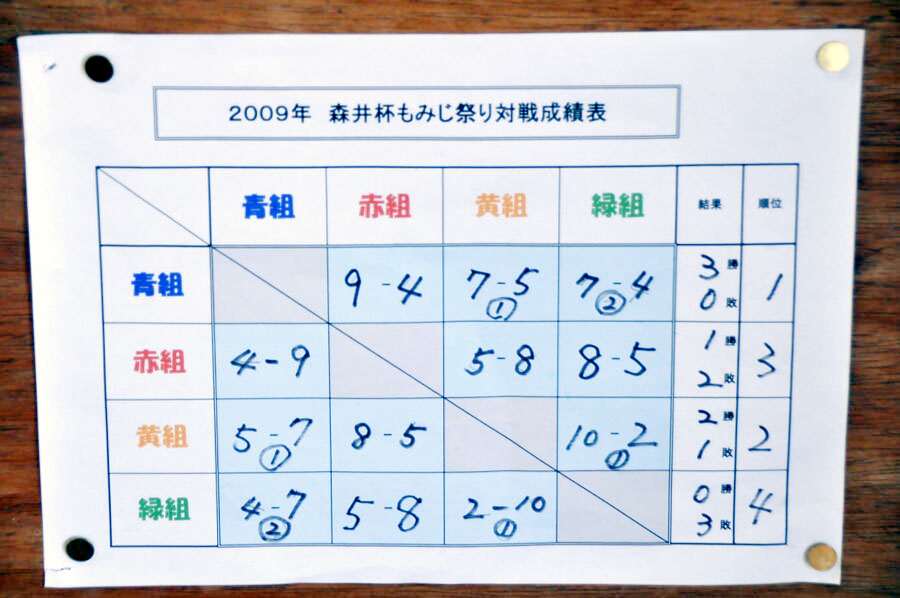 2009年 森井杯もみじ祭り対戦成績表
青組 赤組 黄組 緑組 結果 順位
青組 9-4 7-5 ① 7-4 ② 3勝 0敗 1
赤組 4-9 5-8 8-5 1勝 2敗 3
黄組 5-7 ① 8-5 10-2 ① 2勝 1敗 2
緑組 4-7 ② 5-8 2-10 ① 0勝 3敗 4